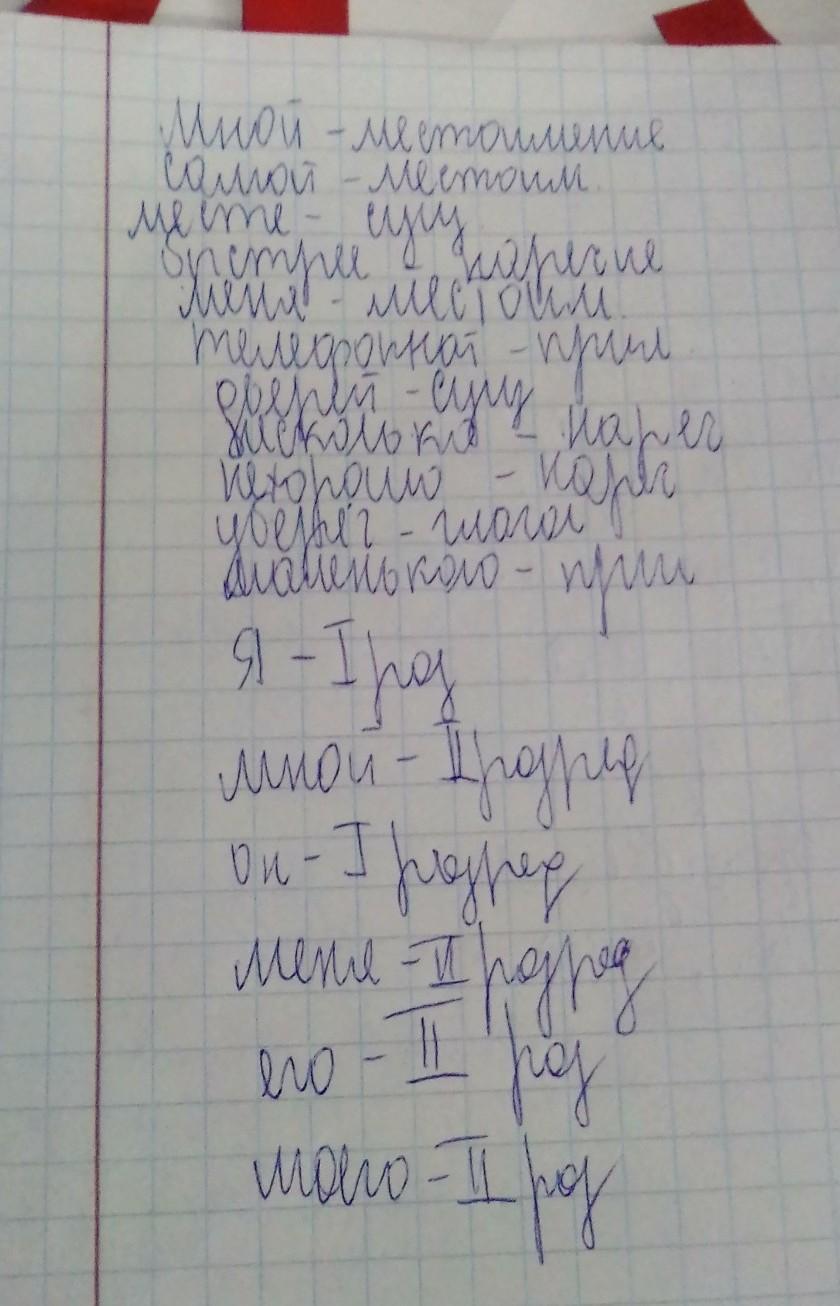 Мной - местоимение
самой - местоим.
месте - сущ
быстрее - наречие
меня - местоим.
телефонной - прил
дверей - сущ
нисколько - нареч
нехорошо - нареч
уберёг - глагол
маленького - прил
Я - I раз
мной - II разряд
он - I разряд
меня - VI разряд
его - II раз
моего - II раз